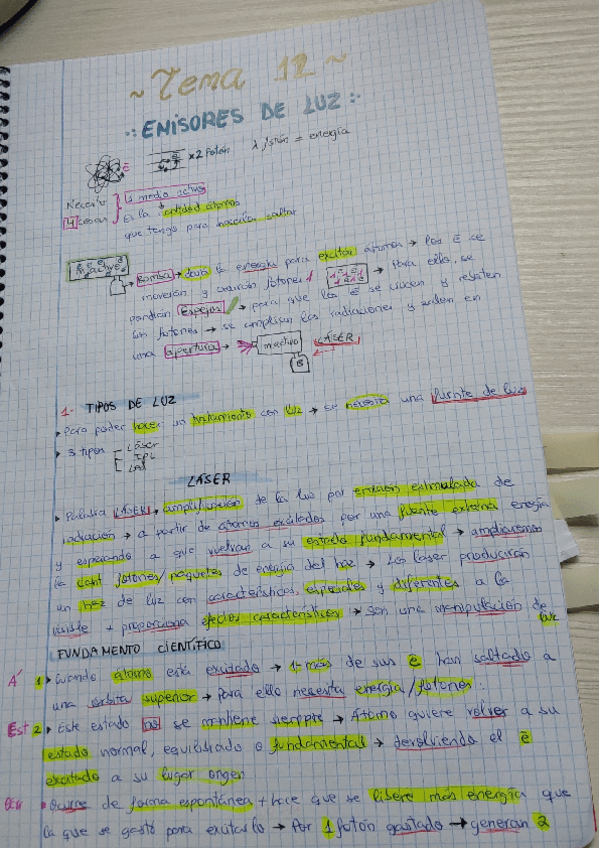 ~ Tema 12 ~
·: EMISORES DE LUZ :·
ē x2 fotón λ fotón = energía
Necesito 1 medio activo
4 cosas Es la cantidad átomos
que tengo para hacerlos saltar
Bomba → dará la energía para excitar átomos → Los ē se
moverán y crearán fotones → Para ello, se
pondrán espejos → para que los ē se choquen y reboten
un fotones → se amplifican las radiaciones y salen en
una apertura → m activo LÁSER
B
1- TIPOS DE LUZ
Para poder hacer un tratamiento con luz → se necesita una fuente de luz
3 tipos LÁSER
IPL
LÁSER
Palabra LÁSER, amplificación de la luz por emisión estimulada de
radiación → a partir de átomos excitados por una fuente externa energía
y esperando a que vuelvan a su estado fundamental → ampliaremos
la cant fotones/paquetes de energía del haz → Los laser producirán
un haz de luz con características, especiales y diferentes a la
visible + proporciona efectos característicos → Son una manipulación de luz
FUNDAMENTO CIENTÍFICO
1 Cuando átomo está excitado → 1 o más de sus ē han saltado a
una órbita superior → Para ello necesita energía/fotones.
Est 2 Este estado no se mantiene siempre → Átomo quiere volver a su
estado normal, equilibrado o fundamental → devolviendo el ē
excitado a su lugar origen
Ocurre de forma espontánea + hace que se libere más energía que
la que se gastó para excitarlo → Por 1 fotón gastado → generan 2